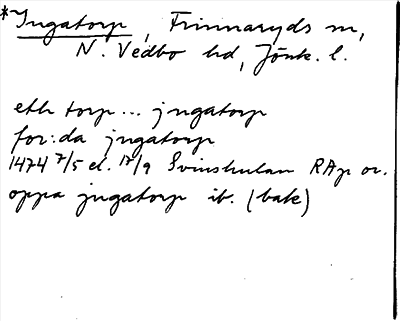 *Ingatorp, Frinnaryds sn,
N. Vedbo hd, Jönk. l.
eth torp ... jngatorp
for:da jngatorp
1474 7/5 el. 17/9 Svinshulan RAp or.
oppa jngatorp ib. (bak)